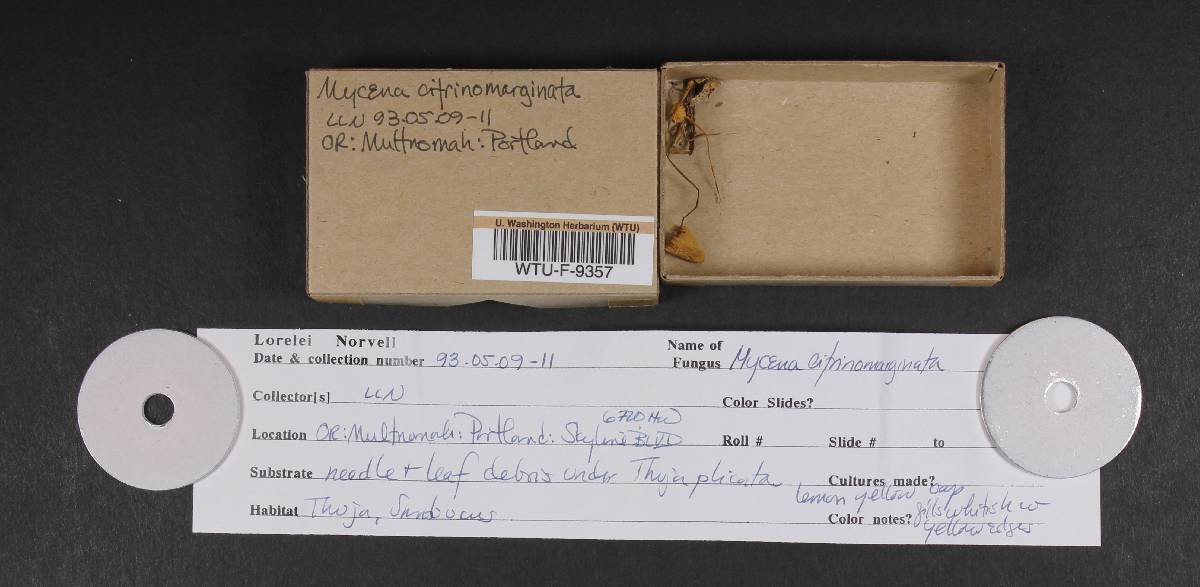 Mycena citrinomarginata
LLN 93.05.09-11
OR: Multnomah: Portland
U. Washington Herbarium (WTU)
WTU-F-9357
Lorelei Norvell
Date & collection number 93.05.09-11
Name of
Fungus Mycena citrinomarginata
Collector[s] LLN
Color Slides?
6720 NW
Location OR: Multnomah: Portland: Skyline BLVD
Roll # Slide # to
Substrate needle + leaf debris under Thuja plicata
Cultures made?
Habitat Thuja, Sambucus
lemon yellow cap
Color notes? gills whitish w
yellow edges